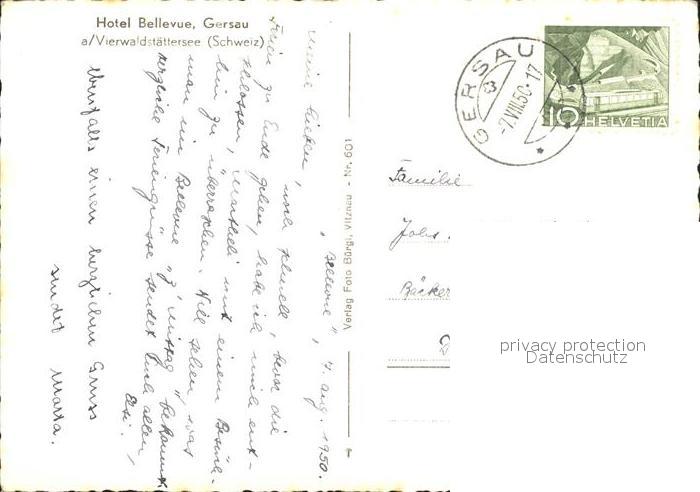 Hotel Bellevue, Gersau
a/Vierwaldstättersee (Schweiz)
"Bellevue", 7. Aug. 1950.
Meine Lieben, noch schnell, bevor die
Ferien zu Ende gehen, habe ich mich ent-
schlossen, Martheli mit einem Besüch-
lein zu überraschen. Will sehen, was
man im Bellevue "z'mittag" bekommt
herzliche Feriengrüsse sendet Euch allen,
Elsi.
Ebenfalls einen herzlichen Gruss
sendet Martha.
Verlag Foto Bürgi, Vitznau - Nr. 601
GERSAU
-7.VIII.50.-17
10 HELVETIA
Familie
Johs.
Bäcker
privacy protection
Datenschutz